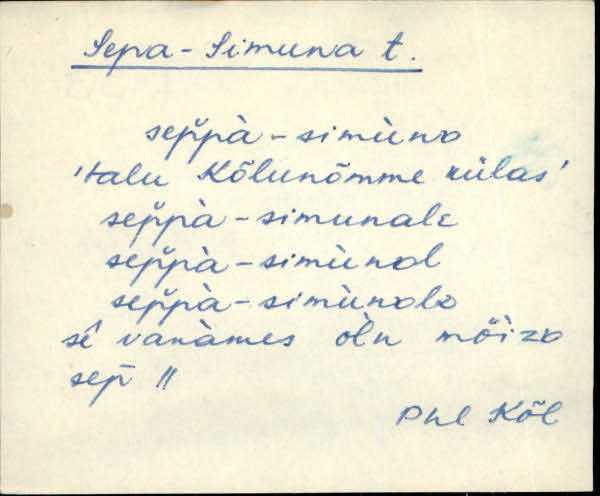 Sepa-Simuna t.
sep̆pà-simùna
'talu Kõlunõmme külas'
sep̆pà-simunale
sep̆pà-simùnal
sep̆pà-simùnala
sê vanàmes òln mõiza
sep̄ ||
Phl Kõl